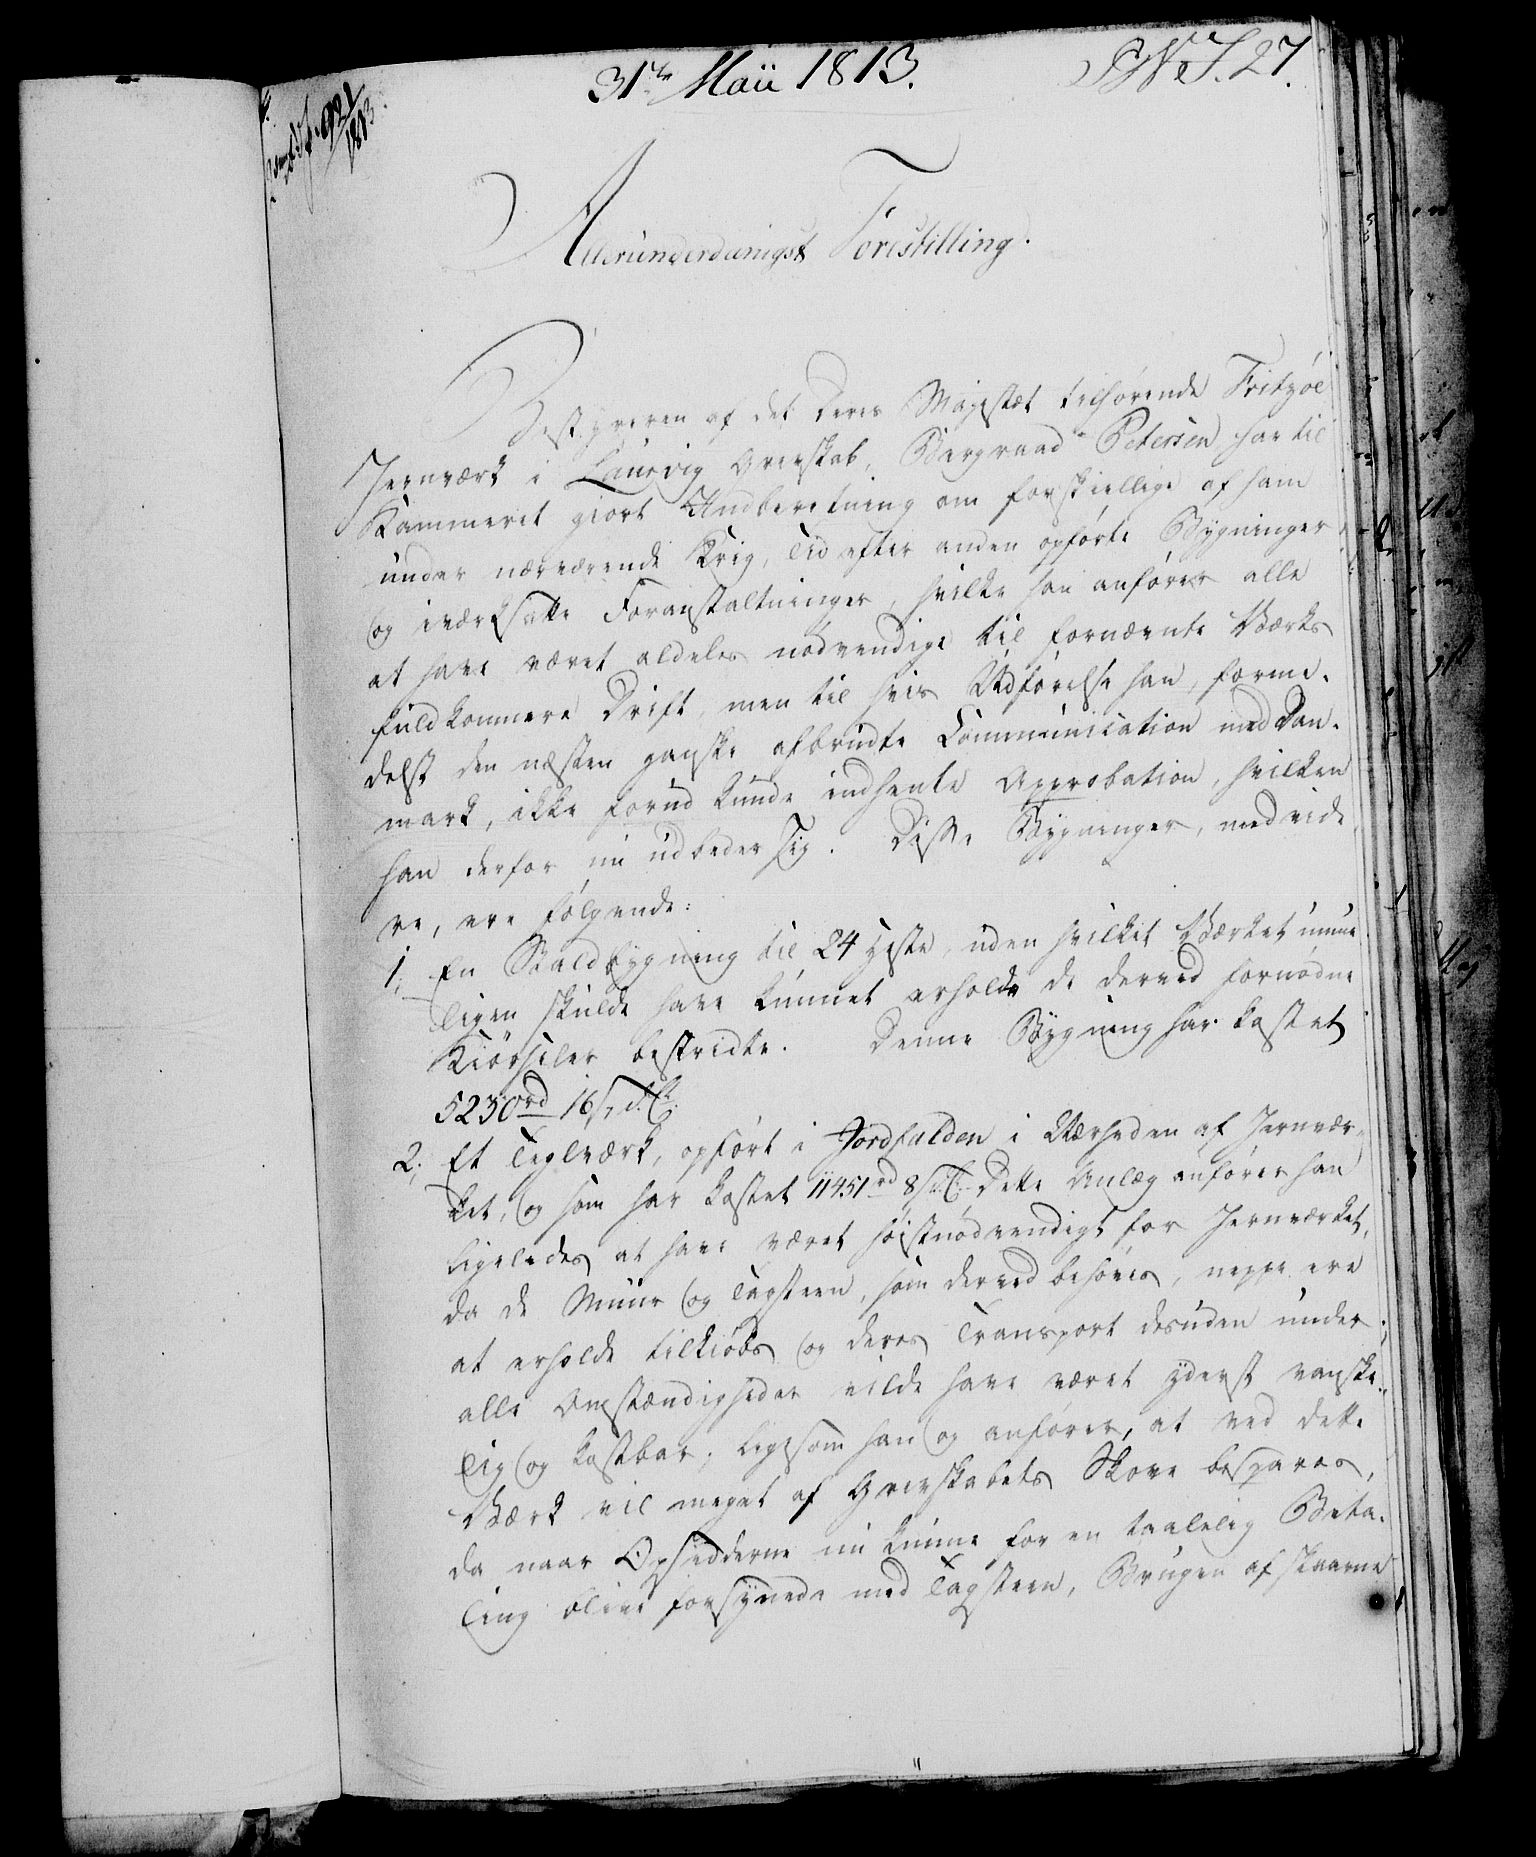 31te Maii 1813.
27.
921/1813
Allerunderdanigst Forestilling.
Bestyreren af det Deres Majestæt tilhørende Fritzöe
Jernværk i Laurvig Grevskab, Bergraad Petersen har til
Kammeret giort Indberetning om forskiellige af ham
under nærværende Krig, Tid efter anden opførte Bygninger
og iværksatte Foranstaltninger, hvilke han anfører alle
at have været aldeles nødvendige til fornævnte Værks
fuldkomnere Drift, men til hvis Udførelse han, forme-
delst den næsten ganske afbrudte Communication med Dan-
mark, ikke forud kunde indhente Approbation, hvilken
han derfor nu udbeder sig. Disse Bygninger, med vide-
re, ere følgende:
1, En Staldbygning til 24 Heste, uden hvilket Værket umue-
ligen skulde have kunnet erholde de derved fornødne
Kiörseler bestridte. Denne Bygning har kostet
5230 rd 16 s.
2, Et Teglværk, opført i Jordfalden i Nærheden af Jernvær-
ket, og som har kostet 11451 rd 8 s. Dette Anlæg anfører han
ligeledes at have været høistnødvendigt for Jernværket,
da de Muur og Tagsteen, som derved behøves, neppe ere
at erholde tilkiøbs og deres Transport desuden under
alle Omstændigheder vilde have været yderst vanske-
lig og kostbar; ligesom han og anfører, at ved dette
Værk vil meget af Grevskabets Skove bespares,
da naar Opsidderne nu kunne for en taalelig Beta-
ling blive forsynede med Tagsteen, Brugen af skaarne